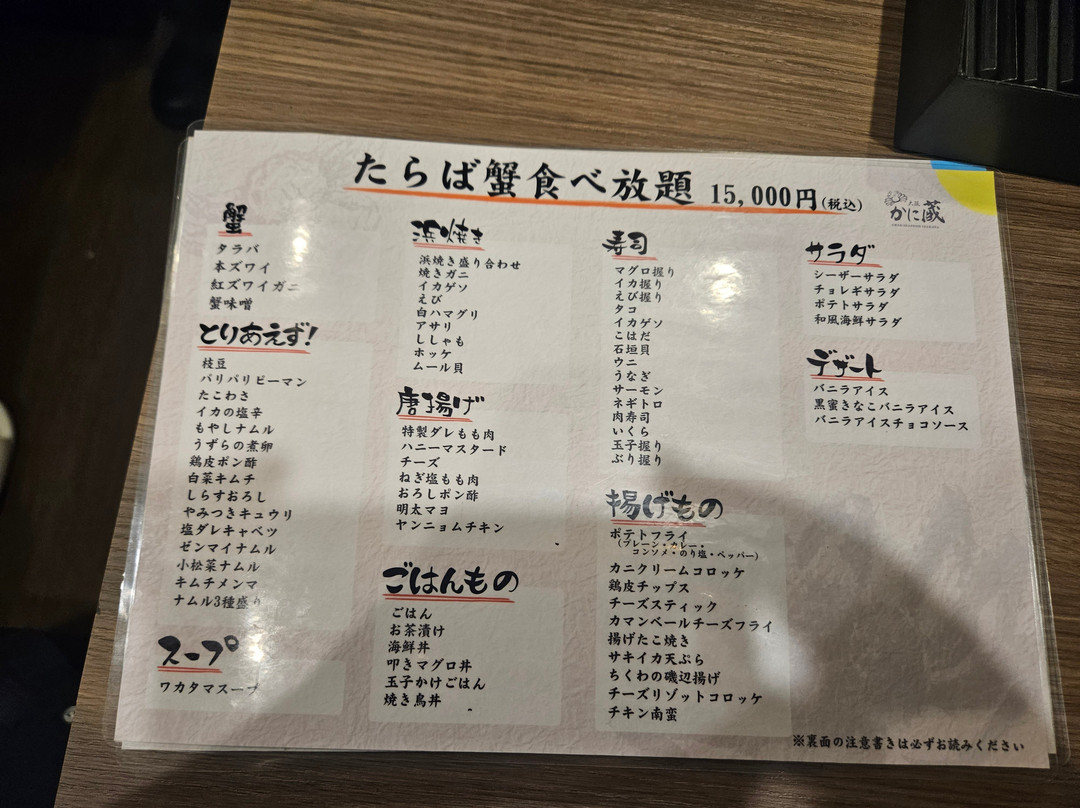 たらば蟹食べ放題 15,000円(税込)
かに蔵
蟹
タラバ
本ズワイ
紅ズワイガニ
蟹味噌
とりあえず!
枝豆
パリパリピーマン
たこわさ
イカの塩辛
もやしナムル
うずらの煮卵
鶏皮ポン酢
白菜キムチ
しらすおろし
やみつきキュウリ
塩ダレキャベツ
ゼンマイナムル
小松菜ナムル
キムチメンマ
ナムル3種盛り
スープ
ワカタマスープ
浜焼き
浜焼き盛り合わせ
焼きガニ
イカゲソ
えび
白ハマグリ
アサリ
ししゃも
ホッケ
ムール貝
唐揚げ
特製ダレもも肉
ハニーマスタード
チーズ
ねぎ塩もも肉
おろしポン酢
明太マヨ
ヤンニョムチキン
ごはんもの
ごはん
お茶漬け
海鮮丼
叩きマグロ丼
玉子かけごはん
焼き鳥丼
寿司
マグロ握り
イカ握り
えび握り
タコ
イカゲソ
こはだ
石垣貝
ウニ
うなぎ
サーモン
ネギトロ
肉寿司
いくら
玉子握り
ぶり握り
揚げもの
ポテトフライ
(プレーン・カレー・
コンソメ・のり塩・ペッパー)
カニクリームコロッケ
鶏皮チップス
チーズスティック
カマンベールチーズフライ
揚げたこ焼き
サキイカ天ぷら
ちくわの磯辺揚げ
チーズリゾットコロッケ
チキン南蛮
サラダ
シーザーサラダ
チョレギサラダ
ポテトサラダ
和風海鮮サラダ
デザート
バニラアイス
黒蜜きなこバニラアイス
バニラアイスチョコソース
※裏面の注意書きは必ずお読みください